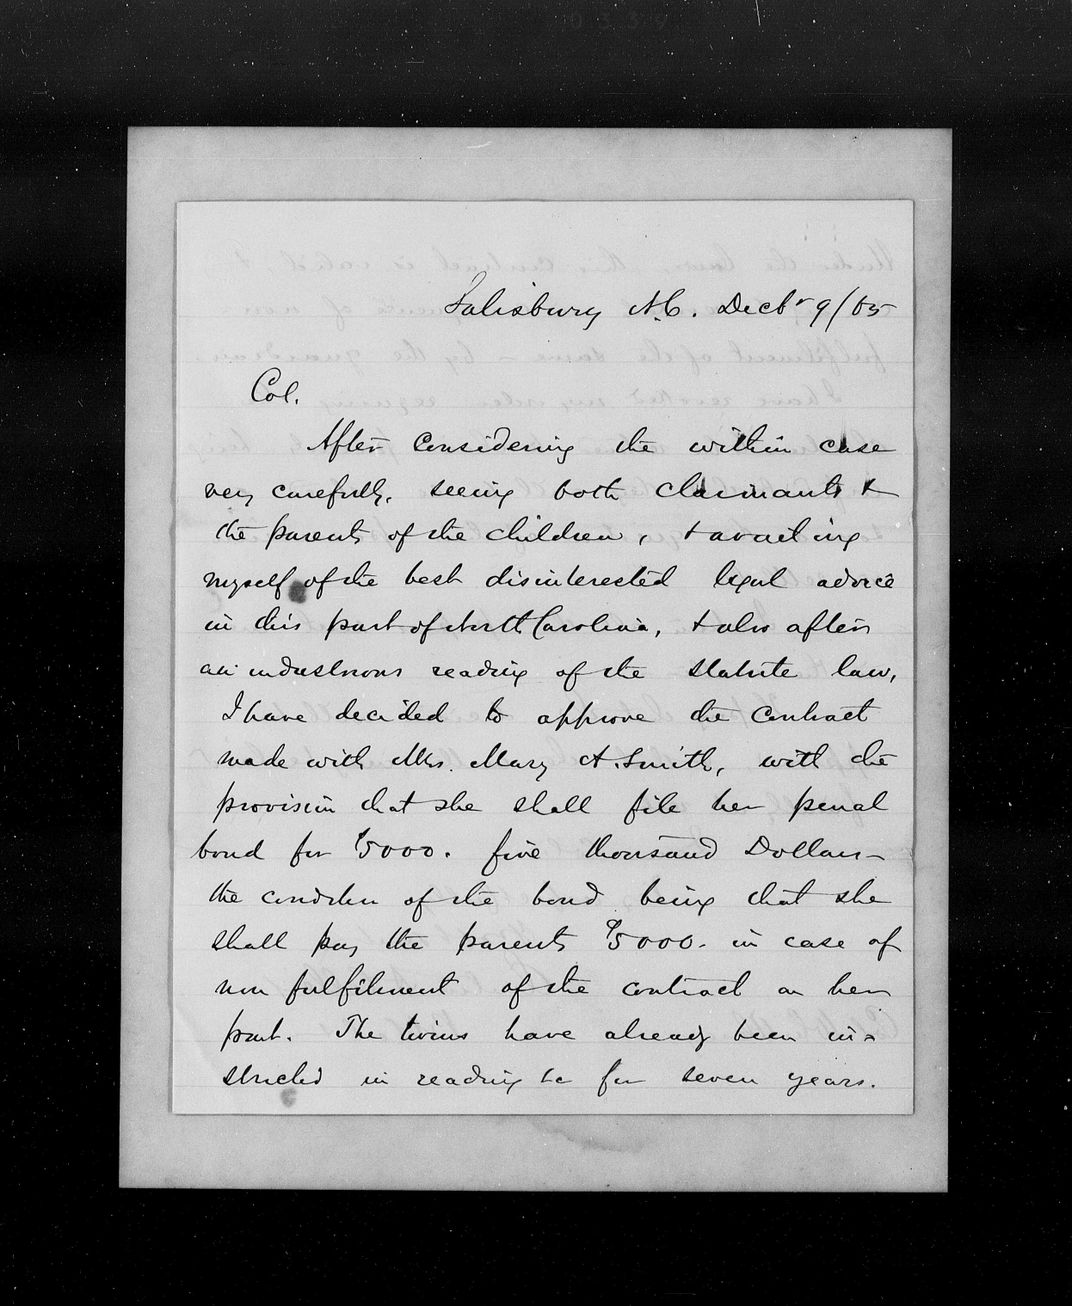 Salisbury N.C. Decbr 9/65
Col.
After considering the within case
very carefully, seeing both claimants &
the parents of the children, & availing
myself of the best disinterested legal advice
in this part of North Carolina, & also after
an industrious reading of the statute law,
I have decided to approve the contract
made with Mrs. Mary A. Smith, with the
provision that she shall file her penal
bond for $5000. five thousand Dollars—
the condition of the bond being that she
shall pay the parents $5000. in case of
non fulfilment of the contract on her
part. The twins have already been in-
structed in reading &c for seven years.